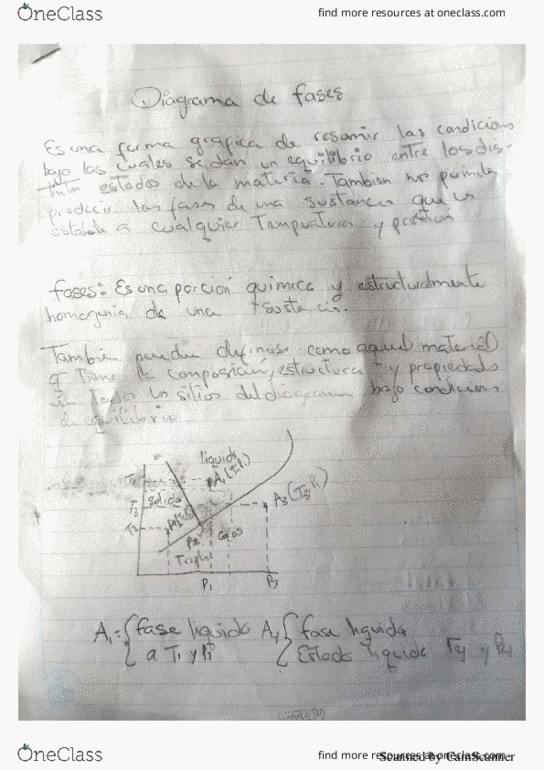 OneClass
find more resources at oneclass.com
Diagrama de fases
Es una forma gráfica de resumir las condicion
bajo las cuales se dan un equilibrio entre los dis-
estados de la materia. Tambien nos permite
predecir las fases de una sustancia que es
estable a cualquier Temperatura y presión
fases: Es una porción química y estructuralmente
homogenia de una
También pueden definirse como aquel material
q Tiene la composición, estructura y propiedades
en Todos los sitios del diagrama bajo condiciones
de equilibrio
liquido
solido
T3
T2
Gas
Triple
P1
P3
A1 = fase liquido A4 fase liquida
a T1 y P1 Estado liquido T4 y P4
OneClass
find more resources at oneclass.com
Scanned by CamScanner